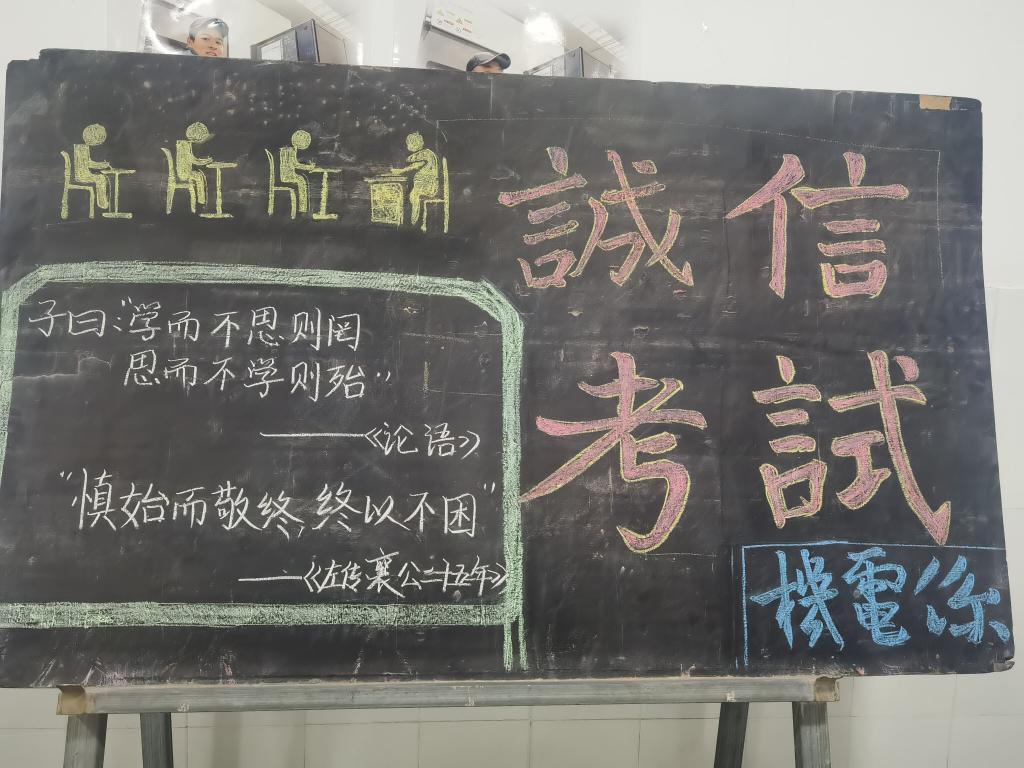 誠信
考試
子曰：“学而不思则罔
思而不学则殆”
——《论语》
“慎始而敬终,终以不困”
——《左传襄公二十五年》
機電係